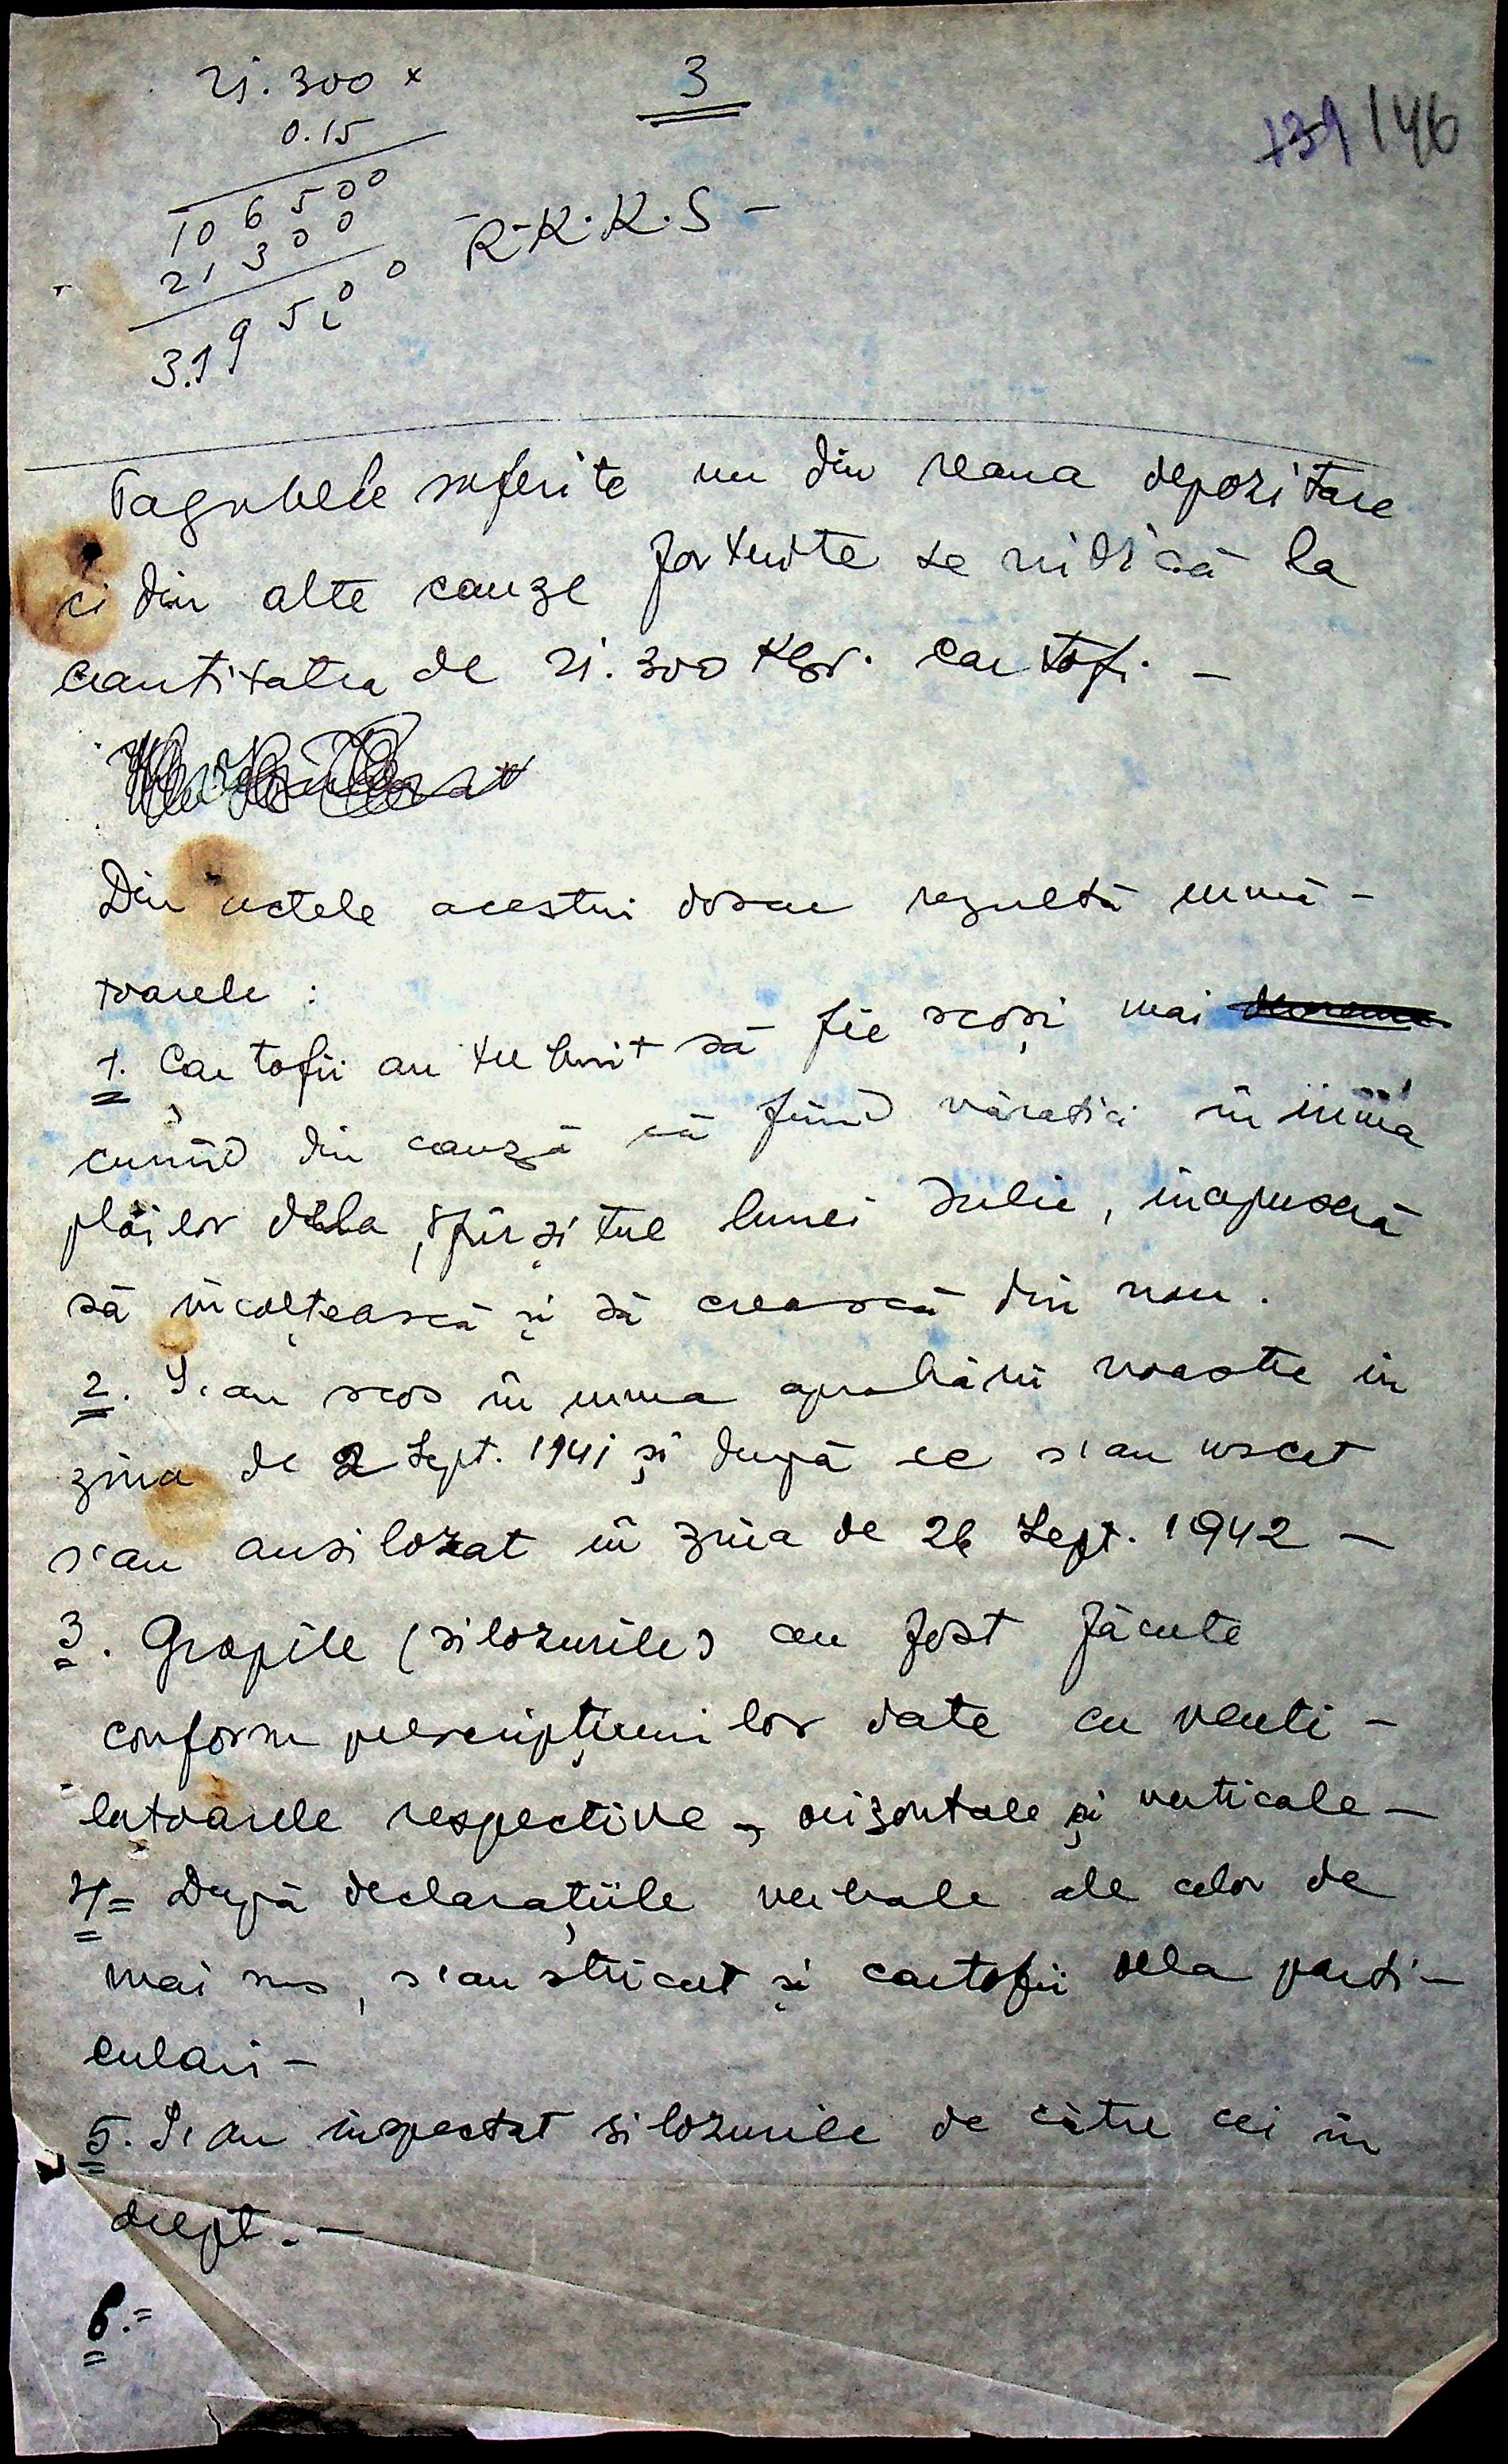 21.300 x
0.15
106500
21300
3.19500
3
139/146
- R.K.K.S -
Pagubele suferite nu din reaua depozitare
ci din alte cauze fortuite se ridică la
cantitatea de 21.300 Kgr. cartofi. -
Din actele acestui dosar rezultă urmă-
toarele :
1. Cartofii au trebuit să fie scoși mai
curând din cauză că fiind văratici în urma
ploilor dela sfârșitul lunei Iulie, începuseră
să încolțească și să crească din nou.
2. S'au scos în urma aprobării noastre în
ziua de 2 Sept. 1941 și după ce s'au uscat
s'au ansilozat în ziua de 26 Sept. 1942 -
3. Gropile (silozurile) au fost făcute
conform prescripțiunilor date cu venti-
latoarele respective, orizontale și verticale -
4= După declarațiile verbale ale celor de
mai sus, s'au stricat și cartofii dela parti-
culari -
5. S'au inspectat silozurile de către cei în
drept. -
6.=